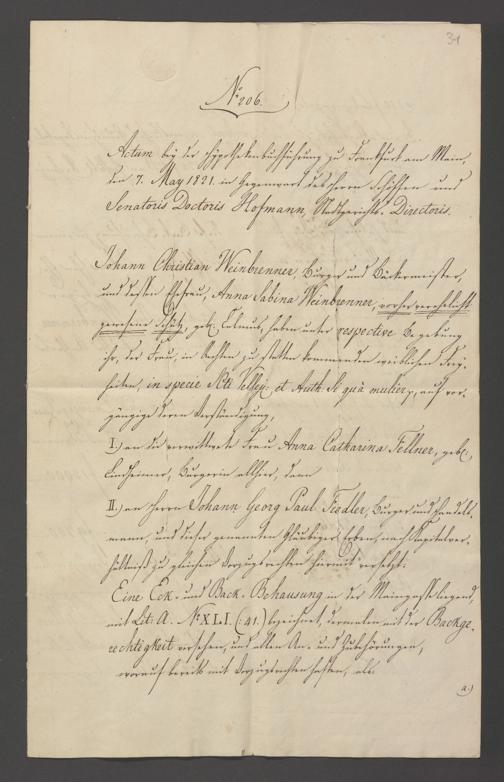 31
No 206.
Actum bey der Hypothekenbuchführung zu Frankfurt am Main,
den 7. May 1821. in Gegenwart des Herrn Schöffen und
Senatoris Doctoris Hofmann, Stadtgerichts-Directoris.
Johann Christian Weinbrenner, Burger und Bäckermeister,
und dessen Ehefrau, Anna Sabina Weinbrenner, vorher verehelicht
gewesene Schütz, geb: haben unter respective Begebung
ihr, der Frau, in Rechten zu statten kommenden weiblichen Frey-
heiten, in specie Scti Vellej: et Auth: Si qua mulier, auf vor-
gängige deren Verständigung,
I.) an die verwittwete Frau Anna Catharina Fellner, geb:
Lindheimer, Burgerin allhier, dann
II.) an Herrn Johann Georg Paul Fiedler, Burger und Handels-
mann, und dieser genannten Gläubiger Erben, nach Kapitalver-
hältniß zu gleichen Vorzugsrechten hiermit versetzt:
Eine Eck- und Back-Behausung in der Mainzgasse liegend,
mit Lit: A. No XLI. (: 41.) bezeichnet, dermalen mit der Backge-
rechtigkeit versehen, und allen An- und Zubehörungen,
worauf bereits mit Vorzugsrechten haften, als:
a.)